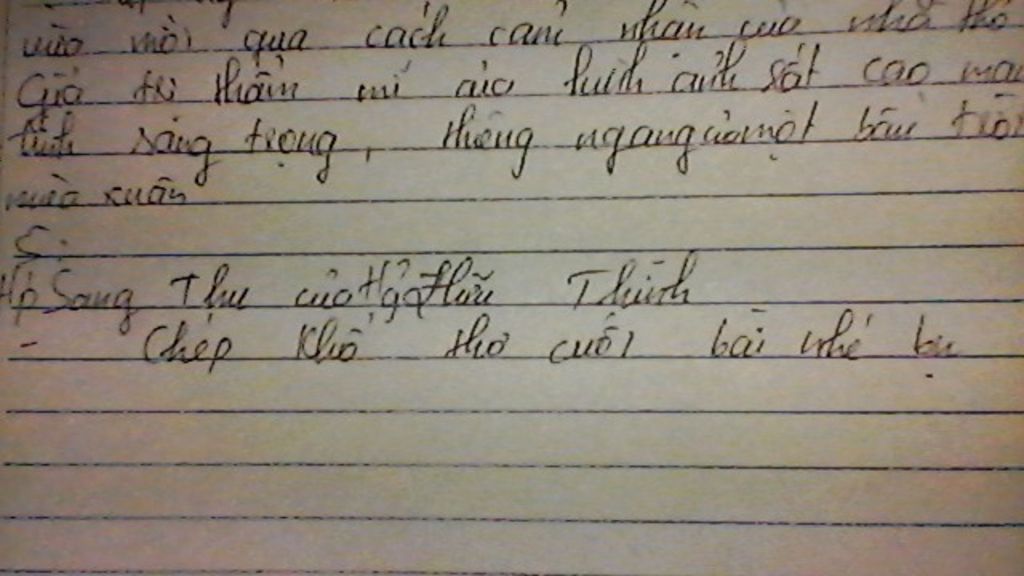 mới qua cách cảm nhận của nhà thơ
Giá trị thẩm mĩ của hình ảnh sắt cao man
tính sáng trọng, thiêng ngang của một bầu trời
mùa xuân
5.
Sang Thu của Hữu Thỉnh
- Chép Khổ thơ cuối bài nhé bn